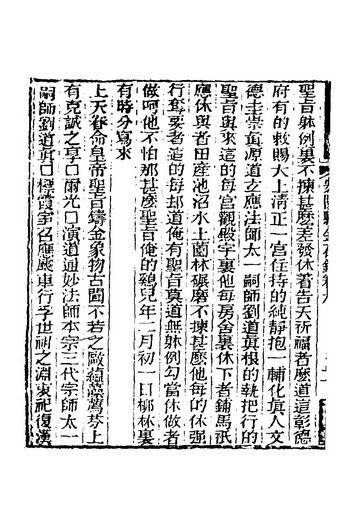 聖旨躰例裏不揀甚麼差發休着告天所福者麼道這彰德
府有的敕賜大上清正一宮住持的純靜抱一輔化真人文
德圭崇真源道之應法師太一嗣師劉道真根的執把行的
聖旨與來這的每宮觀殿宇裏他每房舍裏休下者鋪馬祇
應休與者田產池沼水土園林碾磨不揀甚麼他每的休强
行奪要者這的每却道俺有聖旨莫道無躰例勾當休做者
做呵他不怕那甚麼聖旨俺的鷄兒年二月初一日柳林裏
有時分寫來
上天眷命皇帝聖旨鑄金象物古聞不若之歐緼藻薦芬上
有克誠之享□爾光□演道通妙法師本宗三代宗師太一
嗣師劉道真□標霞宇名應颷車行孚世祖之淵東祀復漢